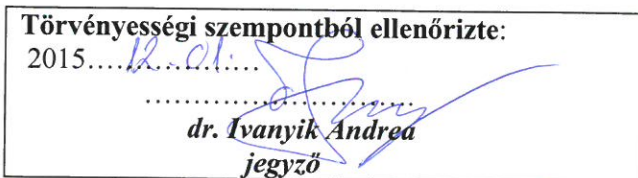 Törvényességi szempontból ellenőrizte:
2015.....12.01.....
..............................
dr. Ivanyik Andrea
jegyző